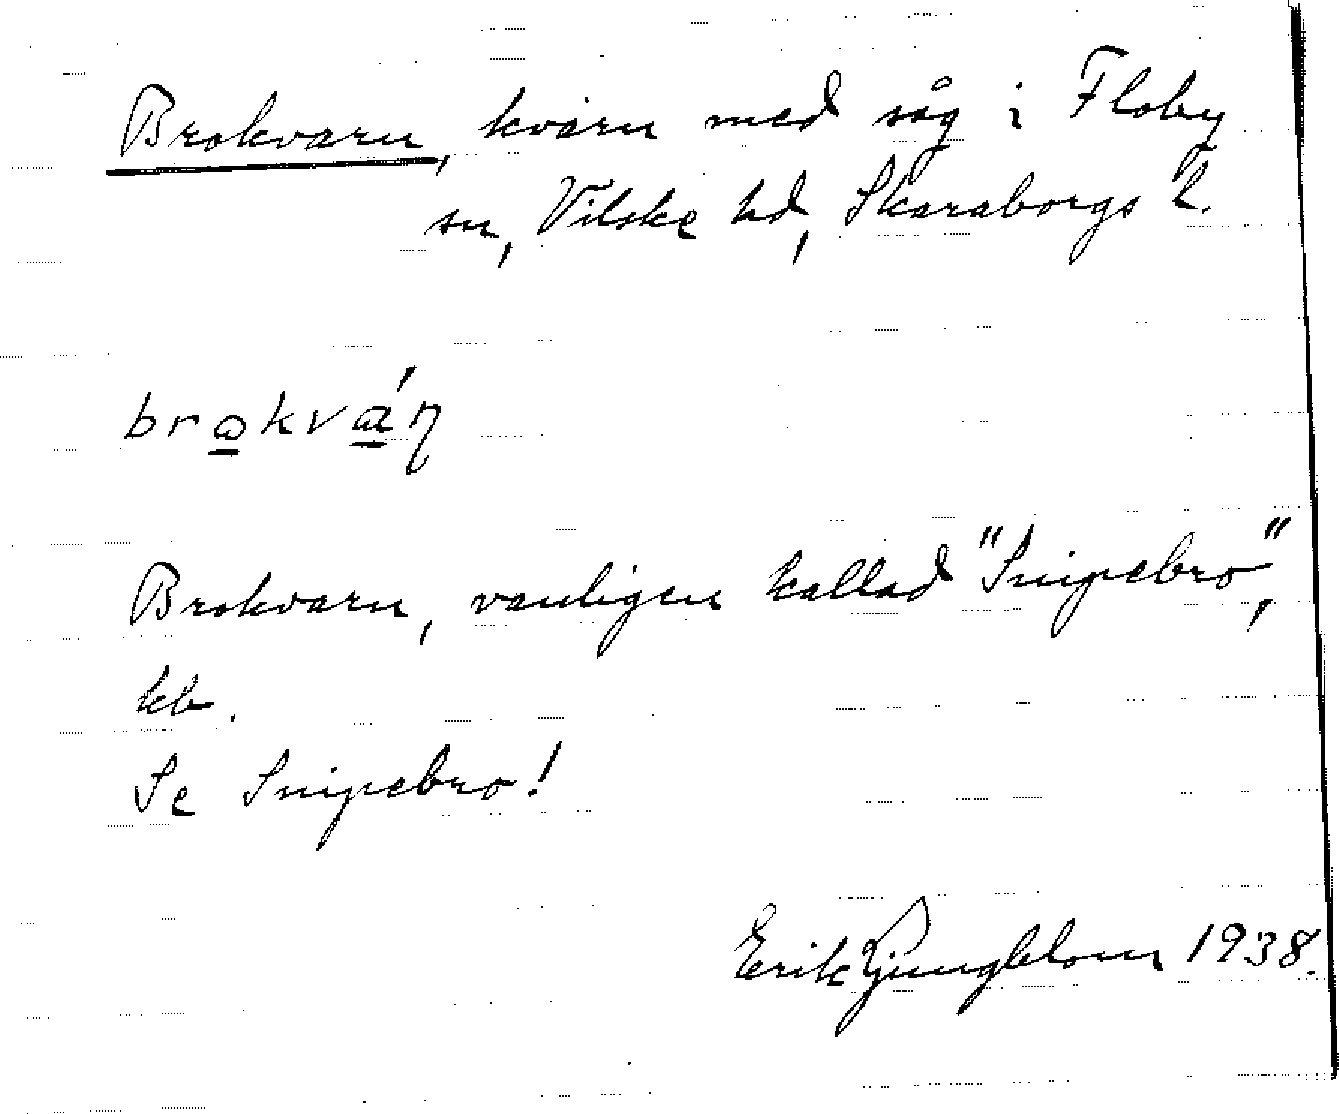 Brokvarn, kvarn med såg i Floby
sn, Vilske hd, Skaraborgs l.
brokván
Brokvarn, vanligen kallad "Snipebro",
kb.
Se Snipebro!
Erik Ljungblom 1938.